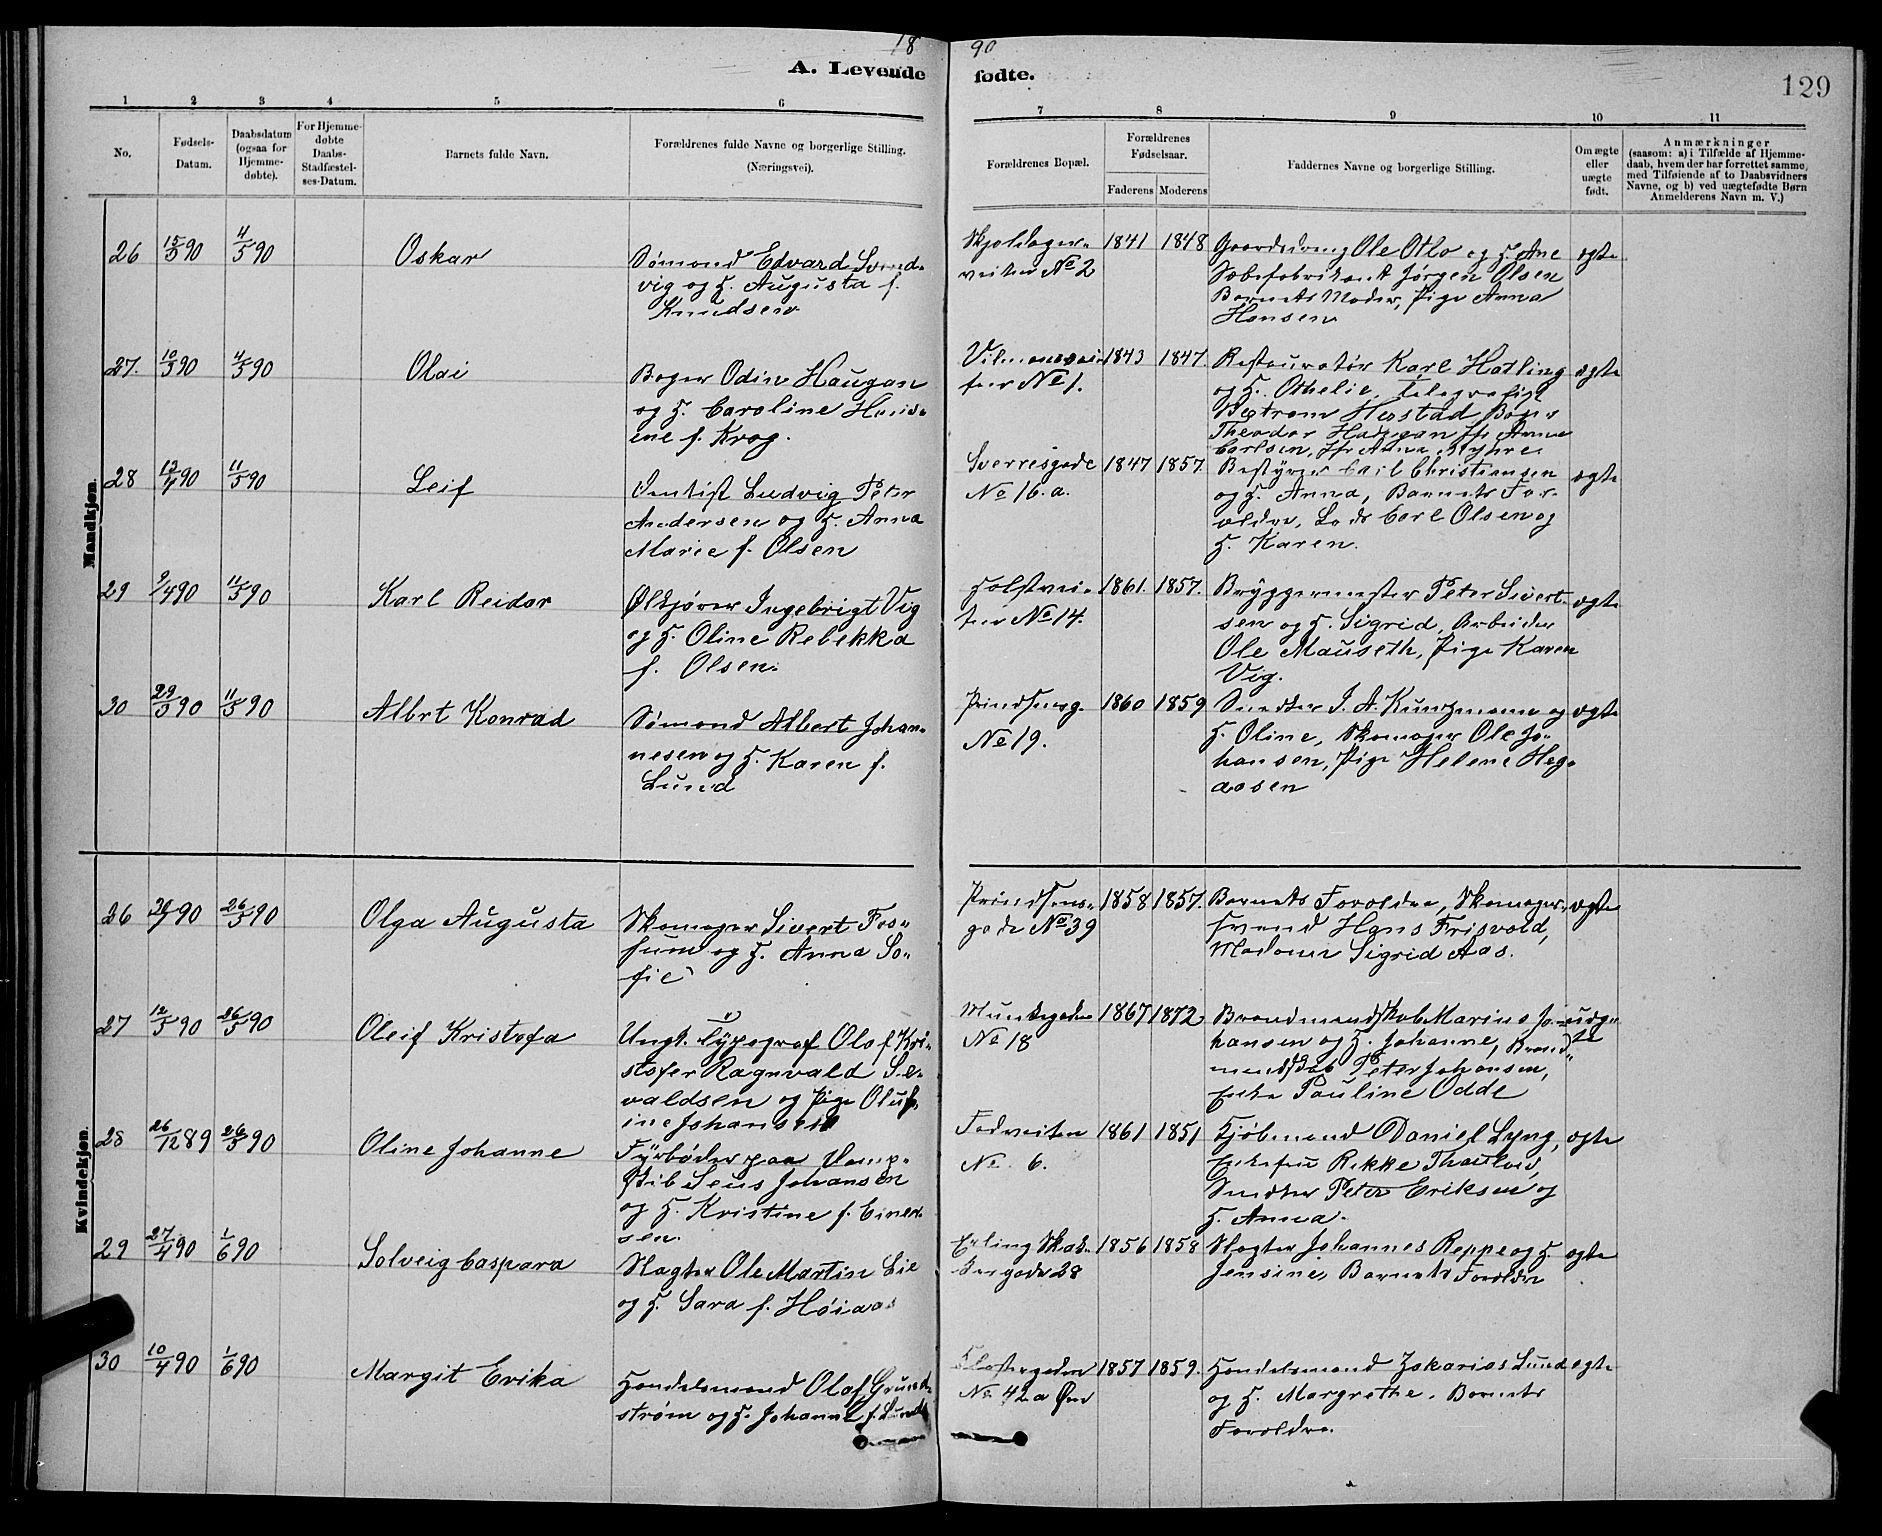 18 90
A. Levende fødte.
129
1 2 3 4 5 6 7 8 9 10 11
No.
Fødsels-Datum.
Daabsdatum (ogsaa for Hjemme-døbte).
For Hjemme-døbte Daabs-Stadfæstel-ses-Datum.
Barnets fulde Navn.
Forældrenes fulde Navne og borgerlige Stilling.
(Næringsvei).
Forældrenes Bopæl.
Forældrenes Fødselsaar.
Faderens Moderens
Faddernes Navne og borgerlige Stilling.
Om ægte eller uægte født.
Anmærkninger
(saasom: a) i Tilfælde af Hjemme-
daab, hvem der har forrettet samme,
med Tilføiende af to Daabsvidners
Navne, og b) ved uægtefødte Børn
Anmelderens Navn m. V.)
Mandkjøn.
26 15/3 90 4/5 90 Oskar
Sømand Edvard Svend-
vig og H. Augusta f.
Knudsen
Skjoldager-
veiten No 2
1841 1848
Gaardsdreng Ole Otlo og H. Ane
Sæbefabrikant Jørgen Olsen
Barnets Moder, Pige Anna
Hansen
ægte
27. 10/3 90 4/5 90 Olai
Bager Odin Haugan
og H. Caroline
f. Krog.
No 1.
1843 1847.
Restauratør Karl Hatling
og H. Othelie, Telegrafist
Herstad Bager
Theodor Haugan Jfr Anna
Carlsen, Jfr Anna Myhre
ægte
28 13/4 90 11/5 90 Leif
Dentist Ludvig Peter
Andersen og H. Anna
Marie f. Olsen
Sverresgade
No 16. a.
1847 1857.
Bestyrer Emil Christiansen
og H. Anna, Barnets For-
ældre, Lods Carl Olsen og
H. Karen.
ægte
29 9/4 90 11/5 90 Karl Reidar
Ølkjører Ingebrigt Vig
og H. Oline Rebekka
f. Olsen.
Holstvei-
ten No 14.
1861. 1857.
Bryggermester Peter Sivert-
sen og H. Sigrid, Arbeider
Ole Mauseth, Pige Karen
Vig.
ægte
30 29/3 90 11/5 90 Albrt Konrad
Sømand Albert Johan-
nesen og H. Karen f.
Lund
Prindsensg.
No 19.
1860 1859
Snedker J. A. Kunzmann og
H. Oline, Skomager Ole Jo-
hansen, Pige Helene Heg-
aasen
ægte
Kvindekjøn.
26 90 26/5 90 Olga Augusta
Skomager Sivert Fos-
sum og H. Anna So-
fie
Prindsens-
gade No 39
1858 1857.
Barnets Forældre, Skomager-
svend Hans Frisvold,
Madame Sigrid Aas.
ægte
27 12/3 90 26/5 90 Oleif Kristofa
Ungk. Typograf Olaf Kri-
stofer Ragnvald Si-
valdsen og Pige Oluf-
ine Johansen
Munkegaden
No 18
1867 1872
Brandmandskab Marius Jo-
hansen og H. Johanne, Brand-
mandskab Peter Johansen,
Enke Pauline Odde
uæg-
te
28 26/12 89 26/5 90 Oline Johanne
Fyrbøder paa Damp-
skib Johansen
og H. Kristine f. Einer-
sen.
No. 6.
1861 1851
Kjøbmand Daniel Lyng,
Enkefru Rikke Thaulow,
Snedker Peter Eriksen og
H. Anna.
ægte
29 27/4 90 1/6 90 Solveig Caspara
Slagter Ole Martin Lie
og H. Sara f. Høiaas
Erling Skak-
kesgade 28
1856 1858
Slagter Johannes Reppe og H.
Jensine, Barnets Forældre
ægte
30 10/4 90 1/6 90 Margit Erika
Handelsmand Olaf Grund-
strøm og H. Johanne f. Lund
Klostergaden
No 42 a Øvre
1857 1859.
Handelsmand Zakarias Lund
og H. Margrethe. Barnets
Forældre.
ægte